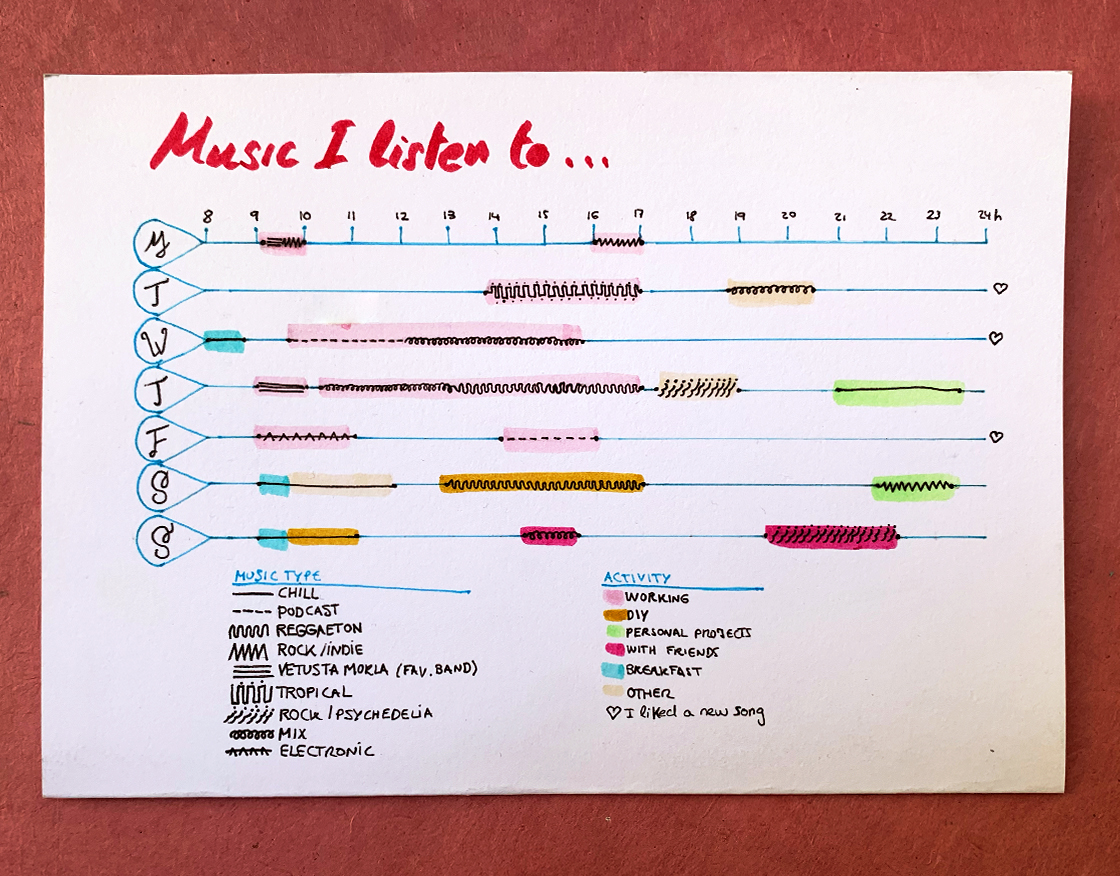 Music I listen to...
8 9 10 11 12 13 14 15 16 17 18 19 20 21 22 23 24h
M
T
W
T
F
S
S
MUSIC TYPE
CHILL
PODCAST
REGGAETON
ROCK/INDIE
VETUSTA MORLA (FAV. BAND)
TROPICAL
ROCK/PSYCHEDELIA
MIX
ELECTRONIC
ACTIVITY
WORKING
DIY
PERSONAL PROJECTS
WITH FRIENDS
BREAKFAST
OTHER
♡ I liked a new song